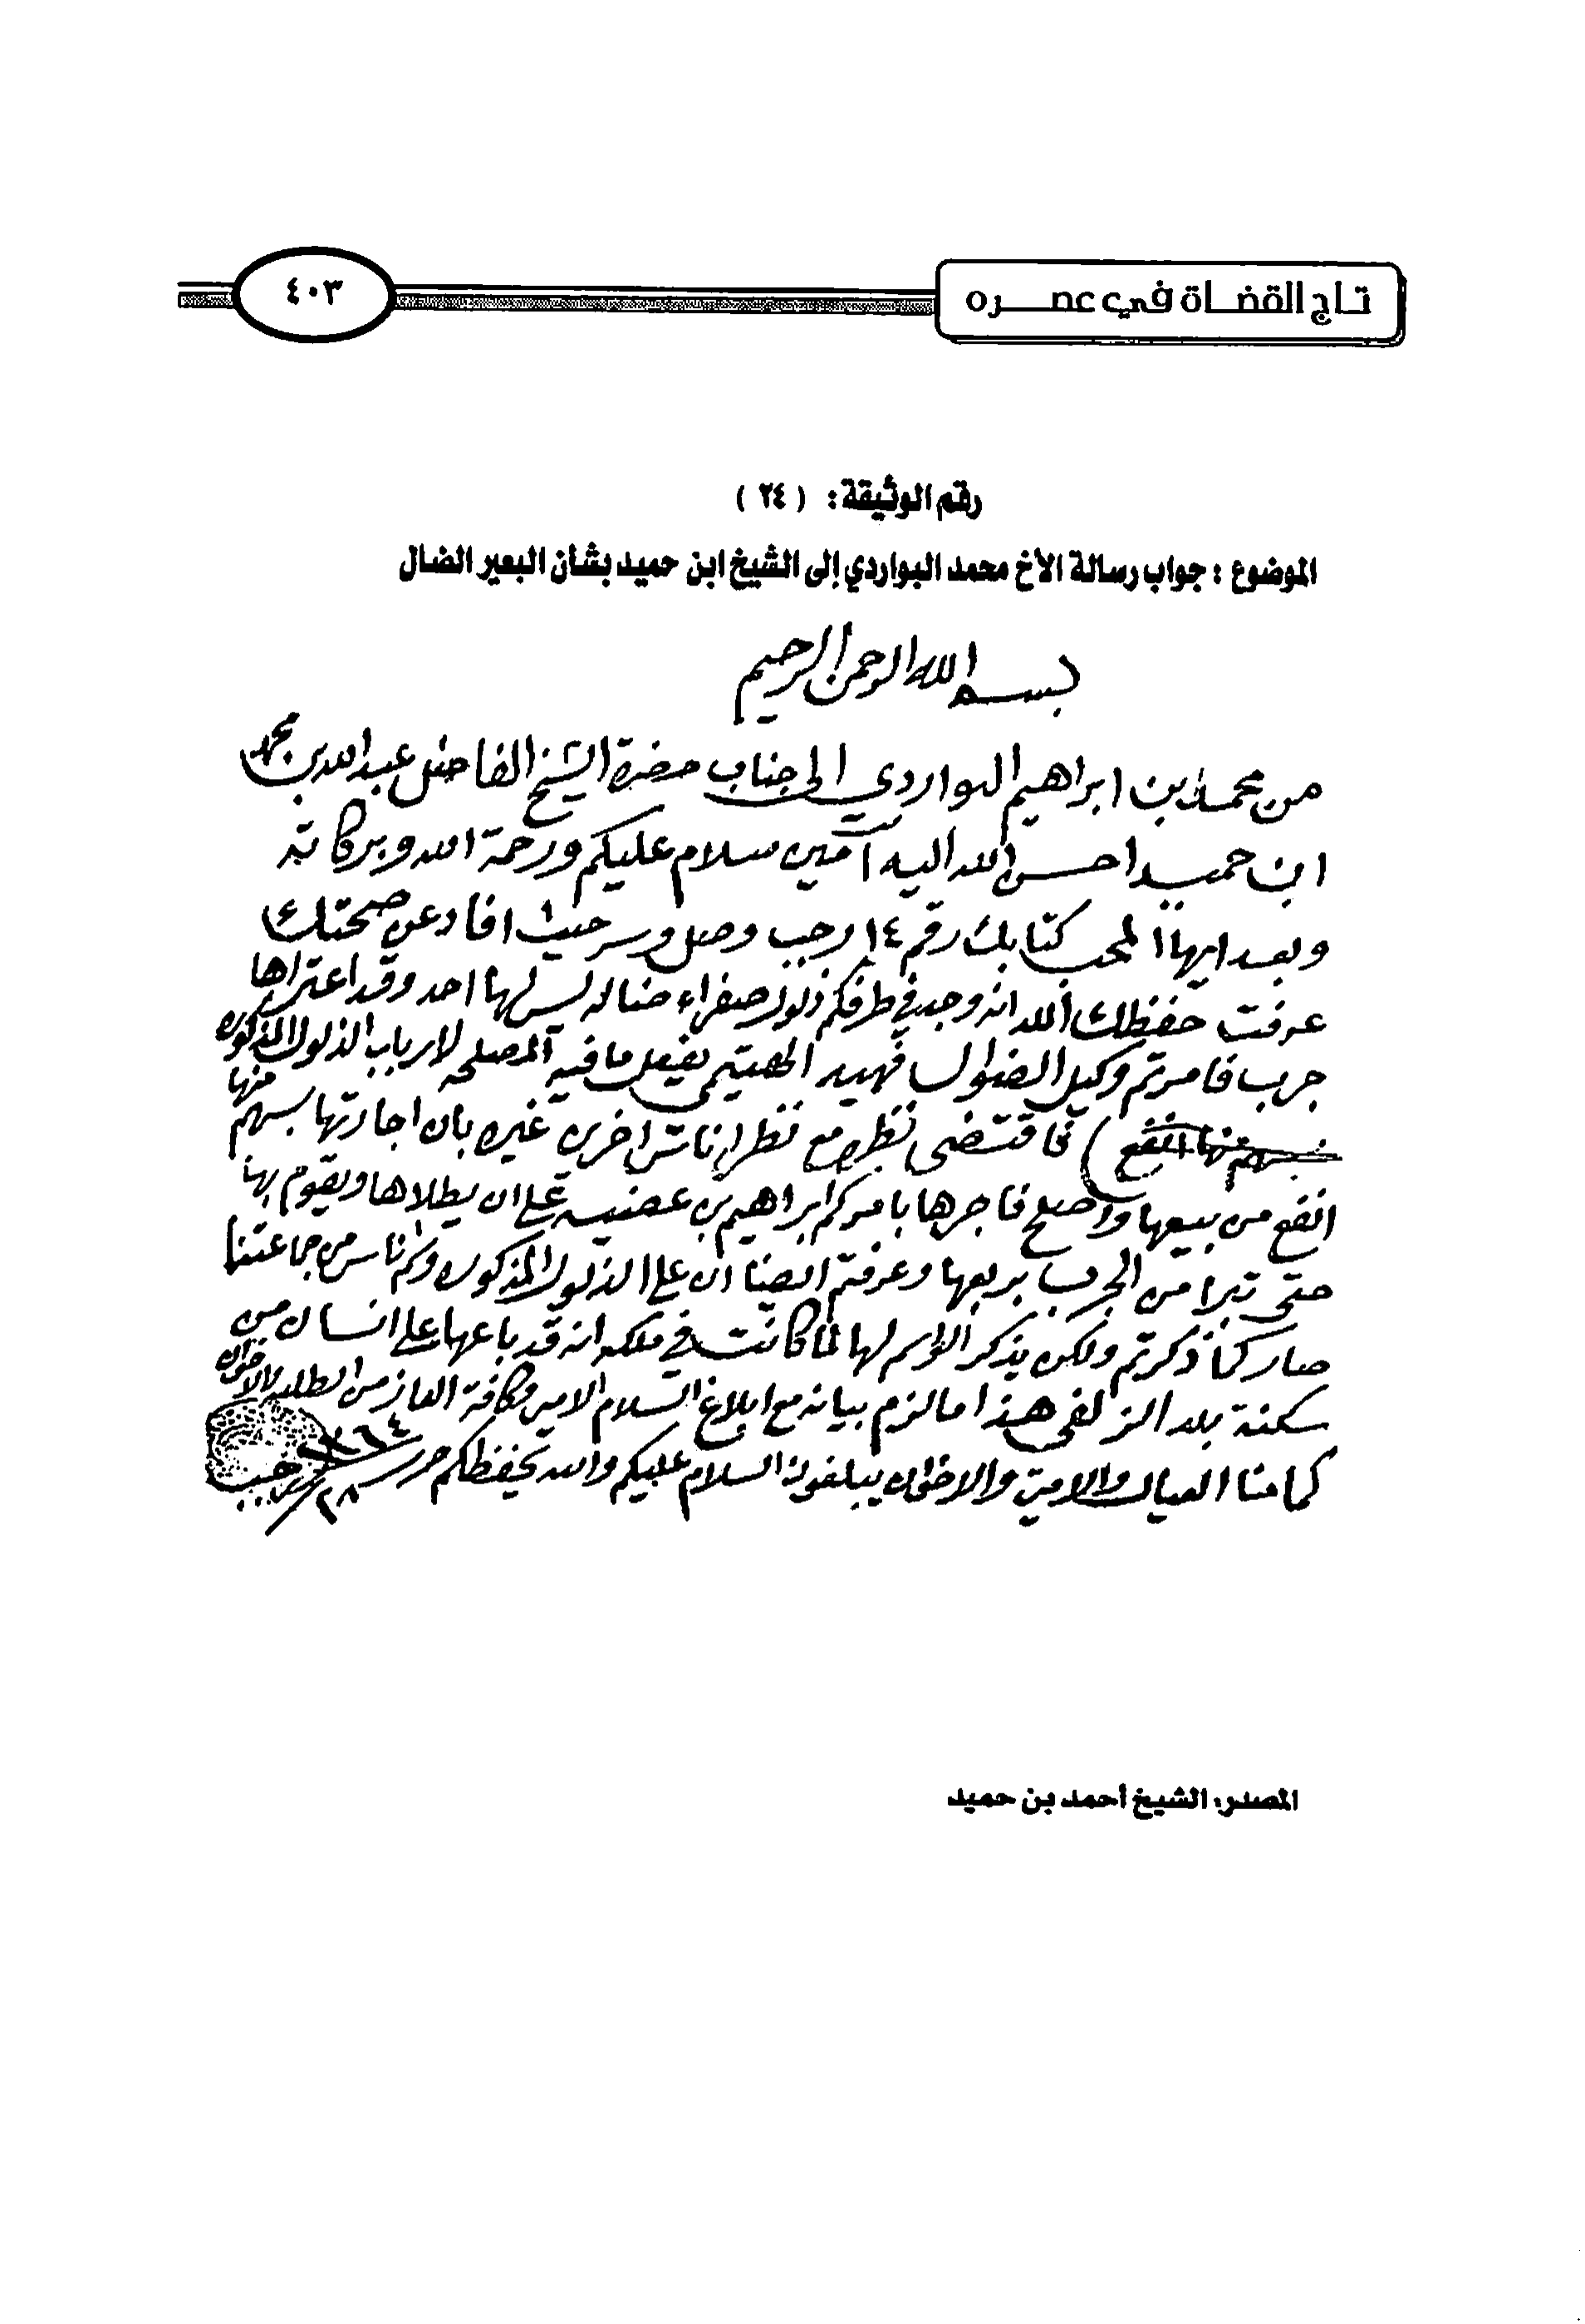 تاج القضاة في عصره
٤٠٣
رقم الوثيقة: (٢٤)
الموضوع: جواب رسالة الأخ محمد البواردي إلى الشيخ ابن حميد بشأن البعير الضال
بسم الله الرحمن الرحيم
من محمد بن ابراهيم البواردي الى جناب حضرة الشيخ الفاضل عبدالله بن محمد
ابن حميد احسن الله اليه آمين سلام عليكم ورحمة الله وبركاته
وبعد ايها المحب كتابك رقم ١٤ رجب وصل وسر حيث افاد عن صحتك
عرفت حفظك الله انه وجد في طرفكم ذلول صفراء ضاله ليس لها احد وقد اعتراها
جرب فامرتم وكيل الضوال فهيد الهتيمي يفعل ما فيه المصلحه لارباب الذلول المذكوره
فاقتضى نظره مع نظر اناس اخرين غيره بان اجارتها بسهم منها
انفع من بيعها واصلح فاجرها بامركم ابراهيم بن عضيب على ان يطلاها ويقوم بها
حتى تبرا من الجرب بربعها وعرفتم ايضا ان على الذلول المذكوره وسم ناس من جماعتنا
صار كما ذكرتم ولكن يذكر الواسم لها لما كانت في ملكه انه قد باعها على انسان من
سكنة بلد الزلفي هذا ما لزم بيانه مع ابلاغ السلام الامير وكافة من الطلبه والاخوان
كما منا العيال والامير والاخوان يبلغون السلام عليكم والله يحفظكم حرر ٢٨ رجب ١٣٦٤
المصدر: الشيخ أحمد بن حميد